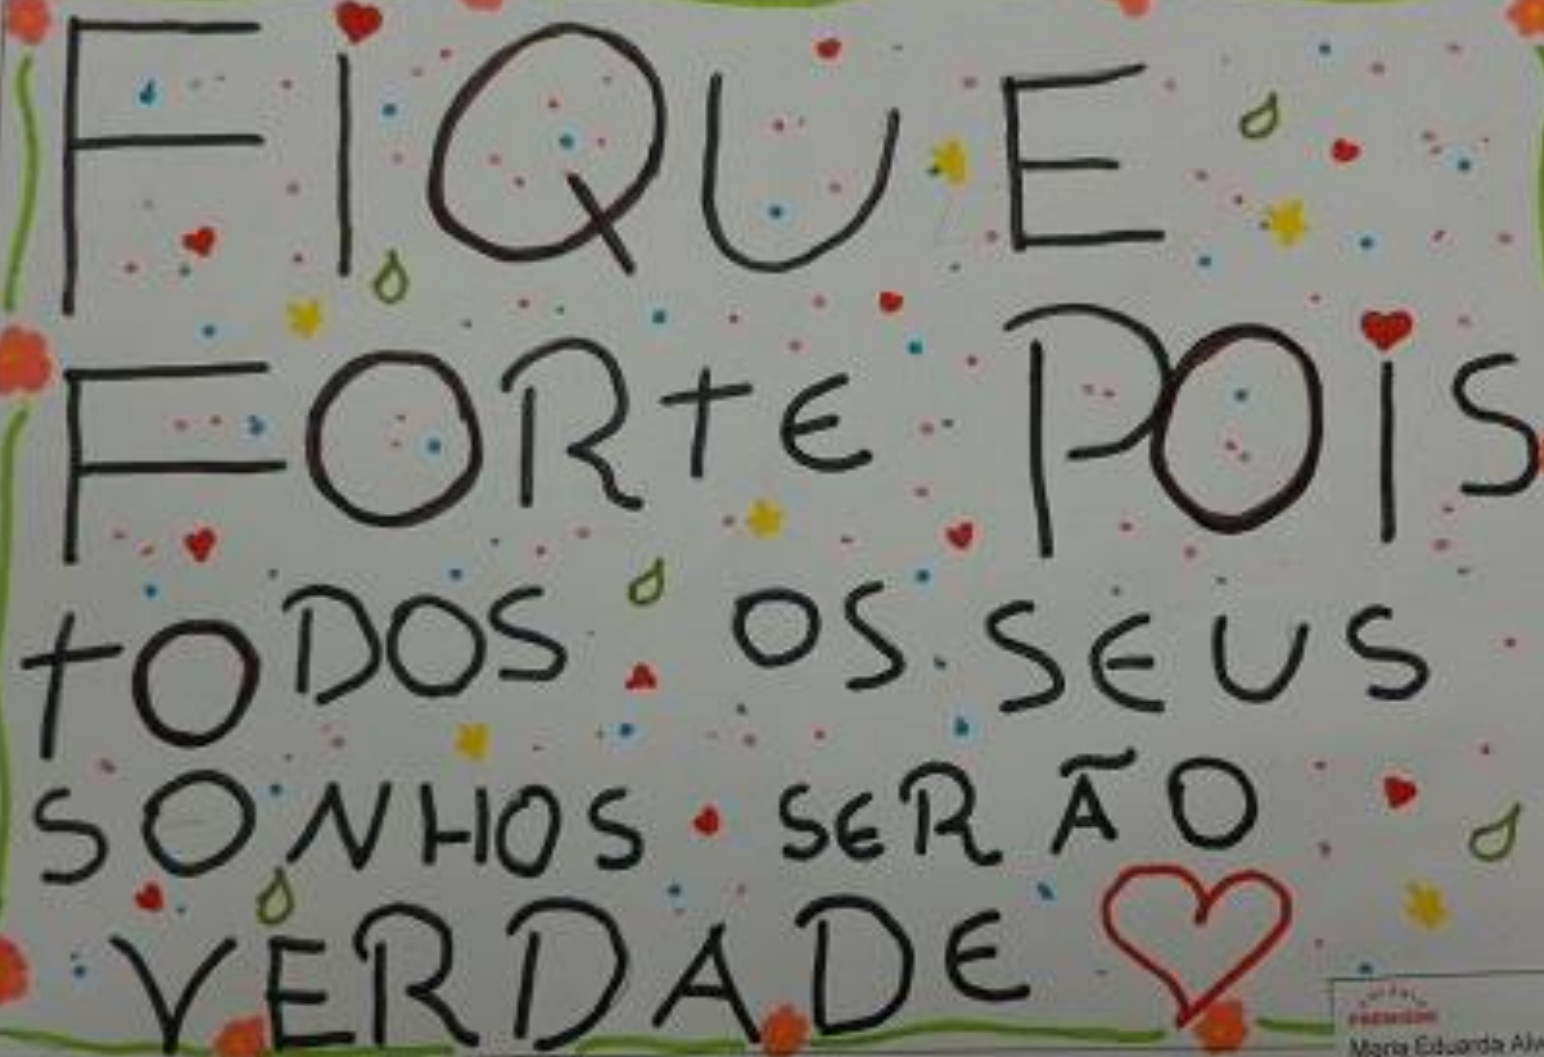 FIQUE
FORTE POIS
TODOS OS SEUS
SONHOS SERÃO
VERDADE
Maria Eduarda